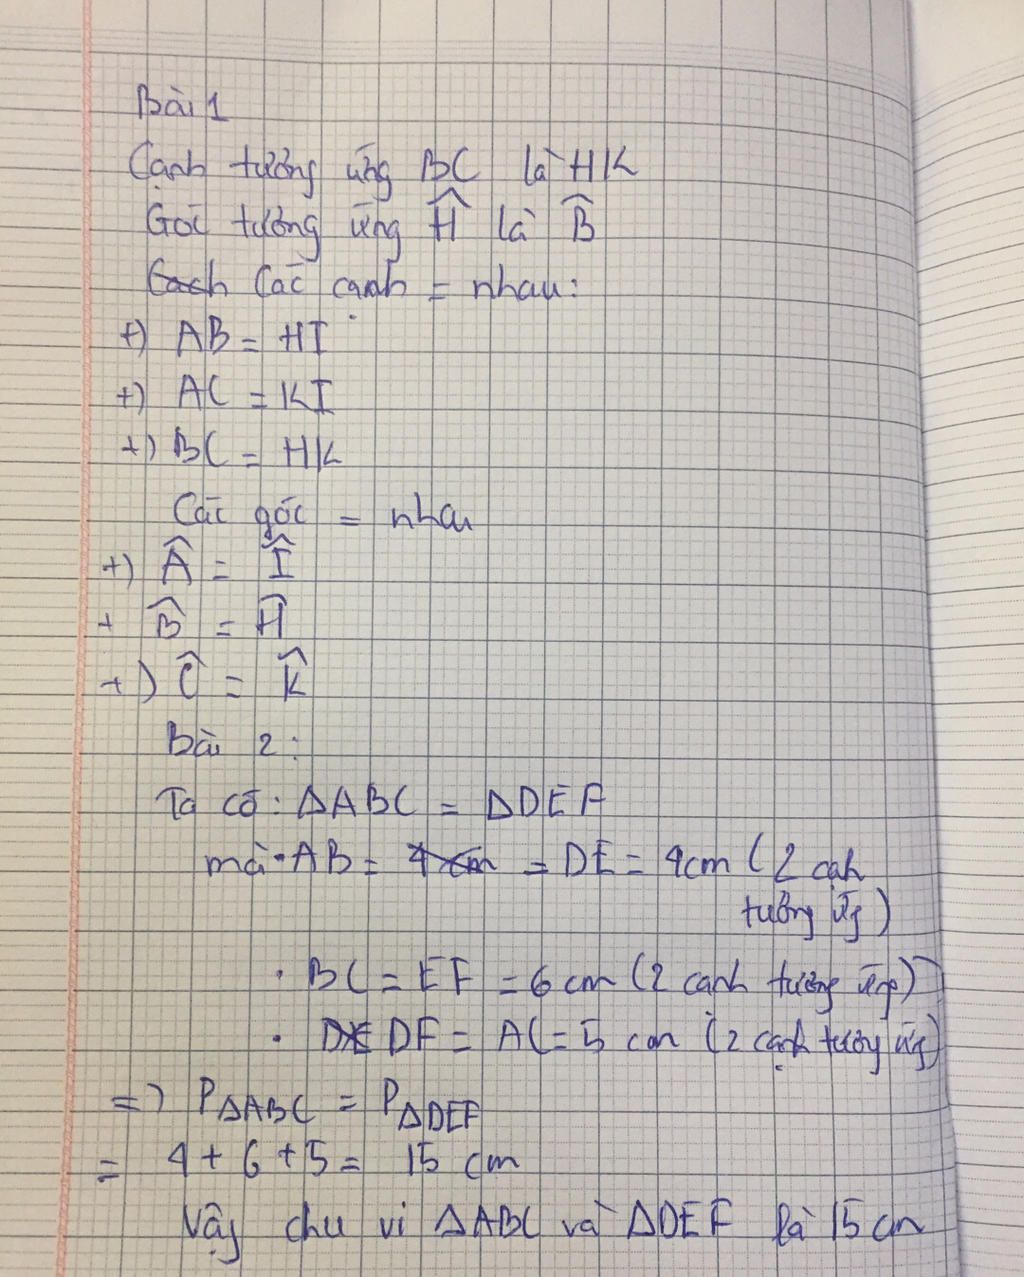 Bài 1
Cạnh tương ứng BC là HK
Góc tương ứng Ĥ là B̂
Các cạnh = nhau:
+) AB = HI
+) AC = KI
+) BC = HK
Các góc = nhau
+) Â = Î
+ B̂ = Ĥ
+) Ĉ = K̂
Bài 2:
Ta có: ΔABC = ΔDEF
mà • AB = DE = 4cm (2 cạnh
tương ứng)
• BC = EF = 6 cm (2 cạnh tương ứng)
• DF = AC = 5 cm (2 cạnh tương ứng)
=) PΔABC = PΔDEF
= 4 + 6 + 5 = 15 cm
Vậy chu vi ΔABC và ΔDEF là 15 cm